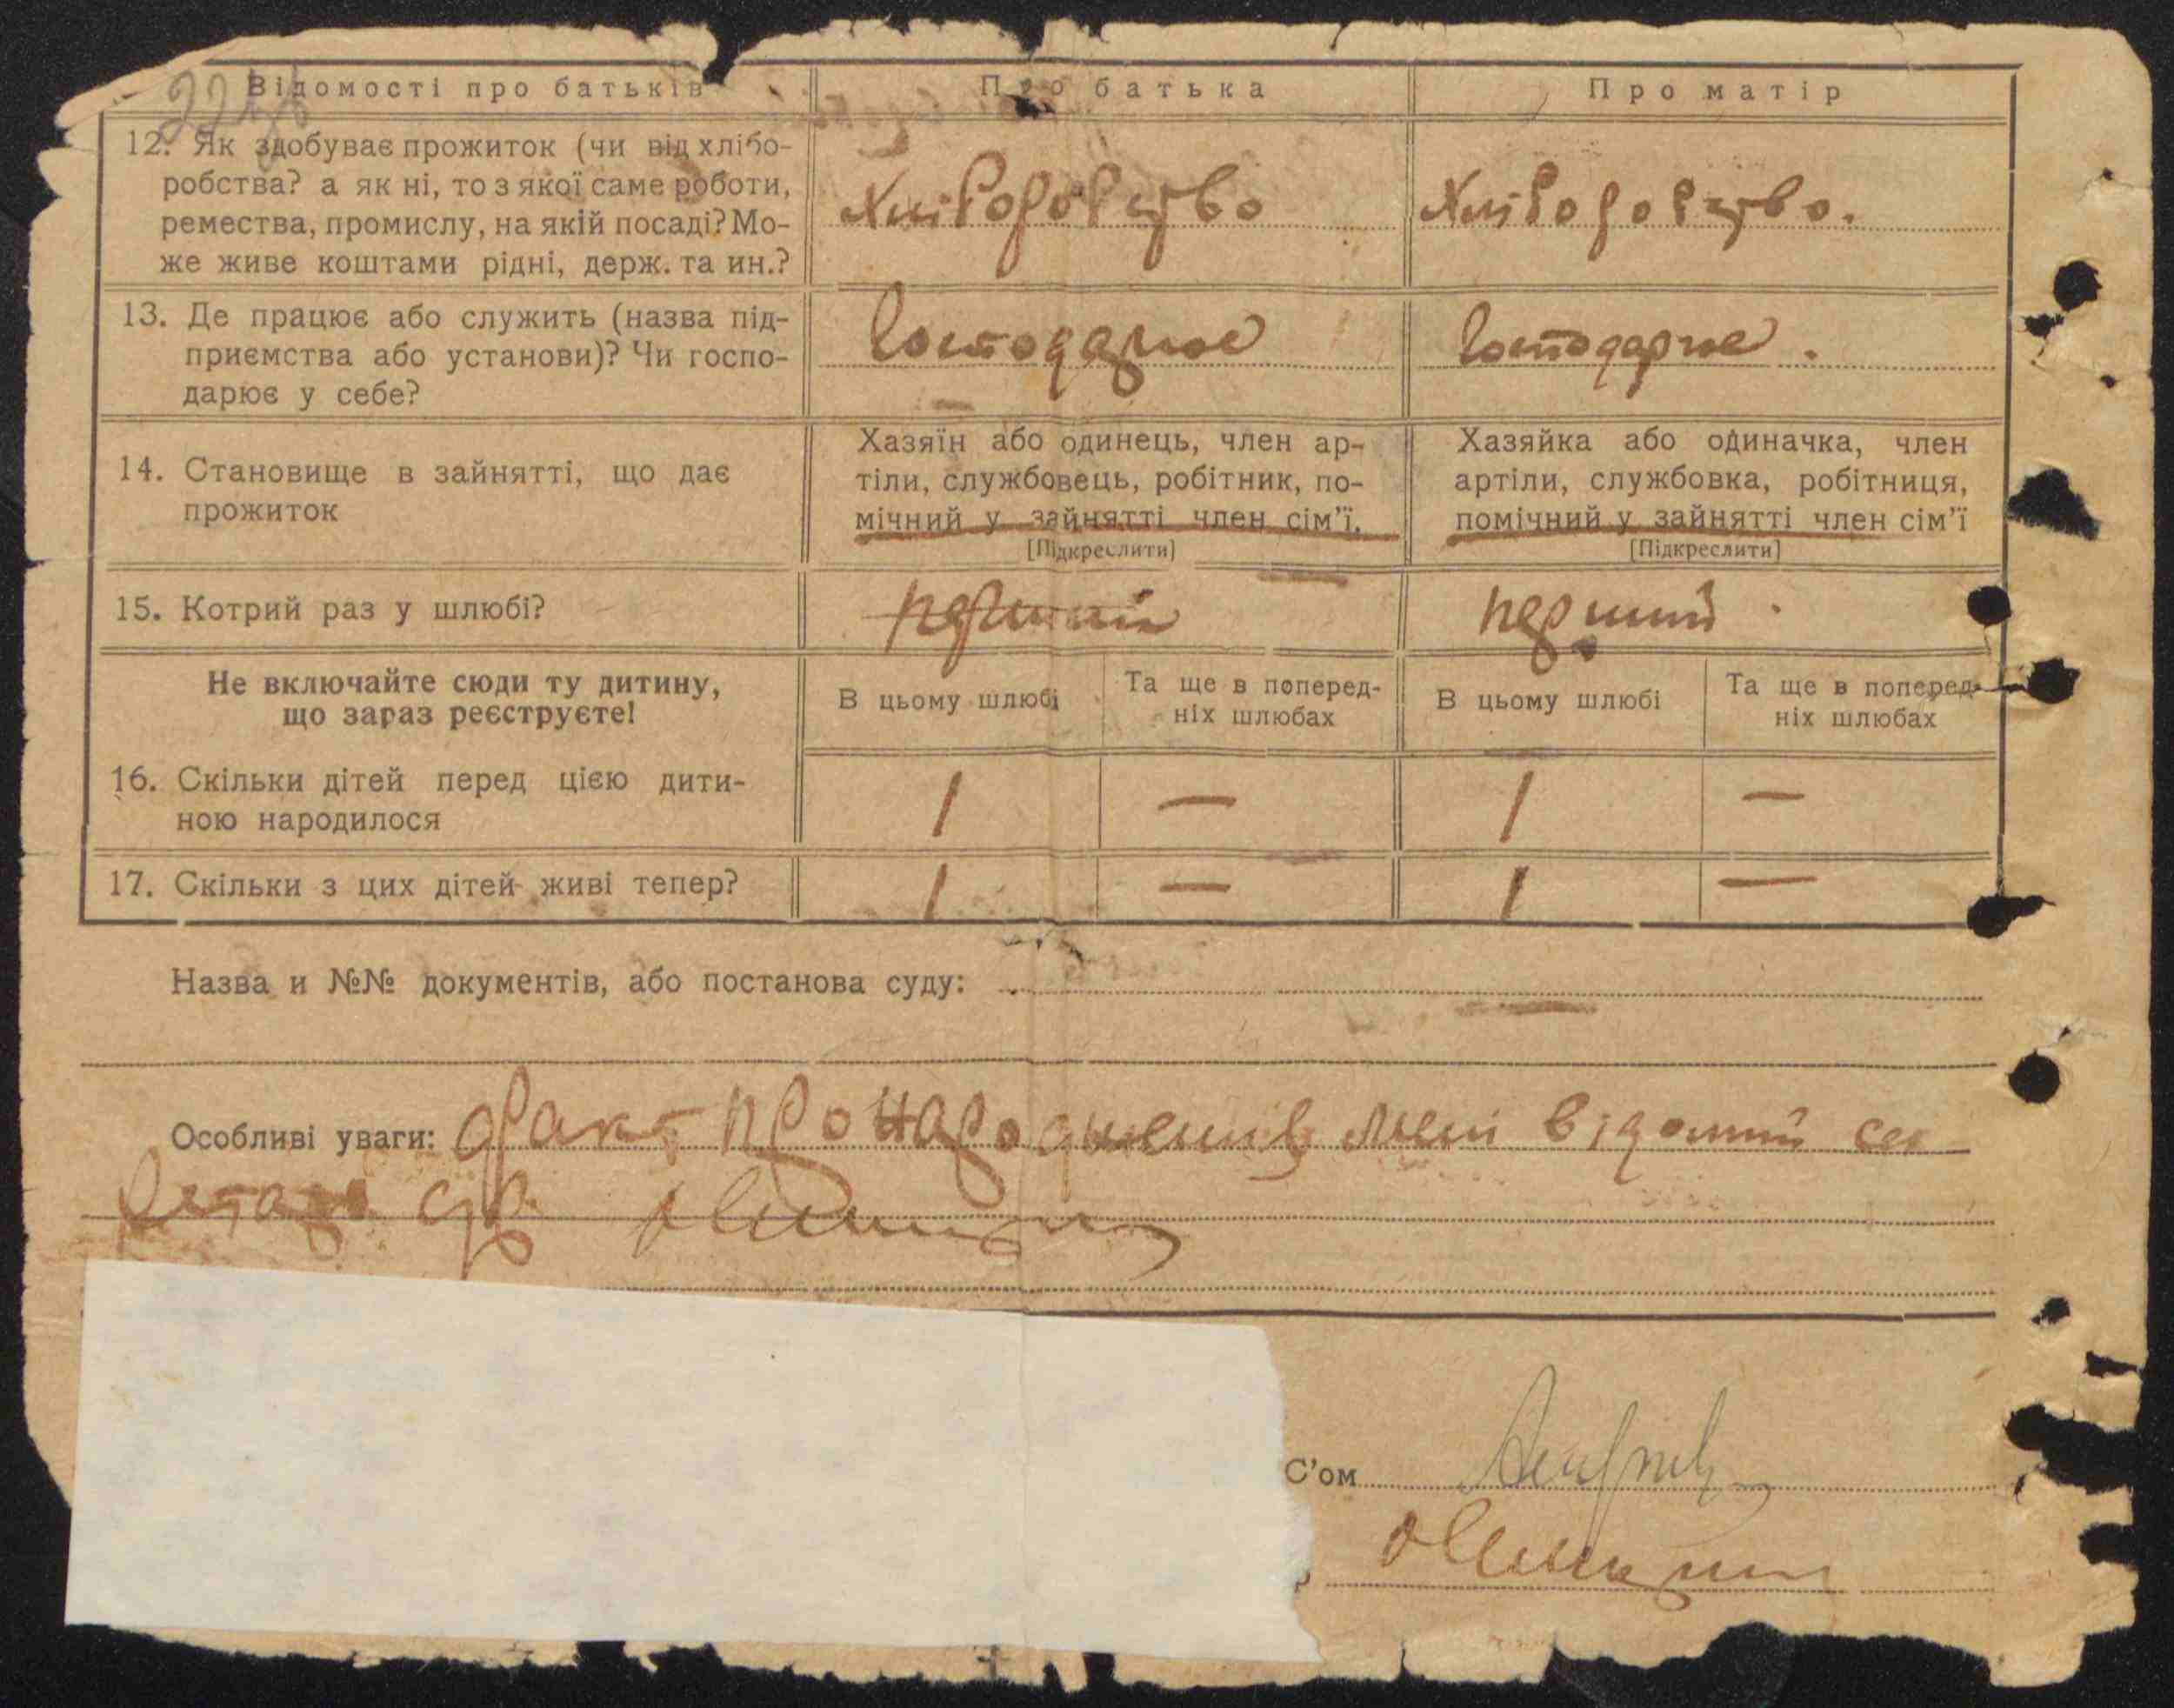 Відомості про батьків
Про батька
Про матір
12. Як здобуває прожиток (чи від хлібо-
робства? а як ні, то з якої саме роботи,
ремества, промислу, на якій посаді? Мо-
же живе коштами рідні, держ. та ин.?
Хліборобство
Хліборобство.
13. Де працює або служить (назва під-
приємства або установи)? Чи госпо-
дарює у себе?
Господарює
Господарює.
14. Становище в зайнятті, що дає
прожиток
Хазяїн або одинець, член ар-
тіли, службовець, робітник, по-
мічний у зайнятті член сім'ї.
[Підкреслити]
Хазяйка або одиначка, член
артіли, службовка, робітниця,
помічний у зайнятті член сім'ї
[Підкреслити]
15. Котрий раз у шлюбі?
перший
перший.
Не включайте сюди ту дитину,
що зараз реєструєте!
В цьому шлюбі
Та ще в поперед-
ніх шлюбах
В цьому шлюбі
Та ще в поперед-
ніх шлюбах
16. Скільки дітей перед цією дити-
ною народилося
1 — 1 —
17. Скільки з цих дітей живі тепер?
1 — 1 —
Назва и №№ документів, або постанова суду:
Особливі уваги: факт про народження мені відомий сек
ретарь с/р
С'ом